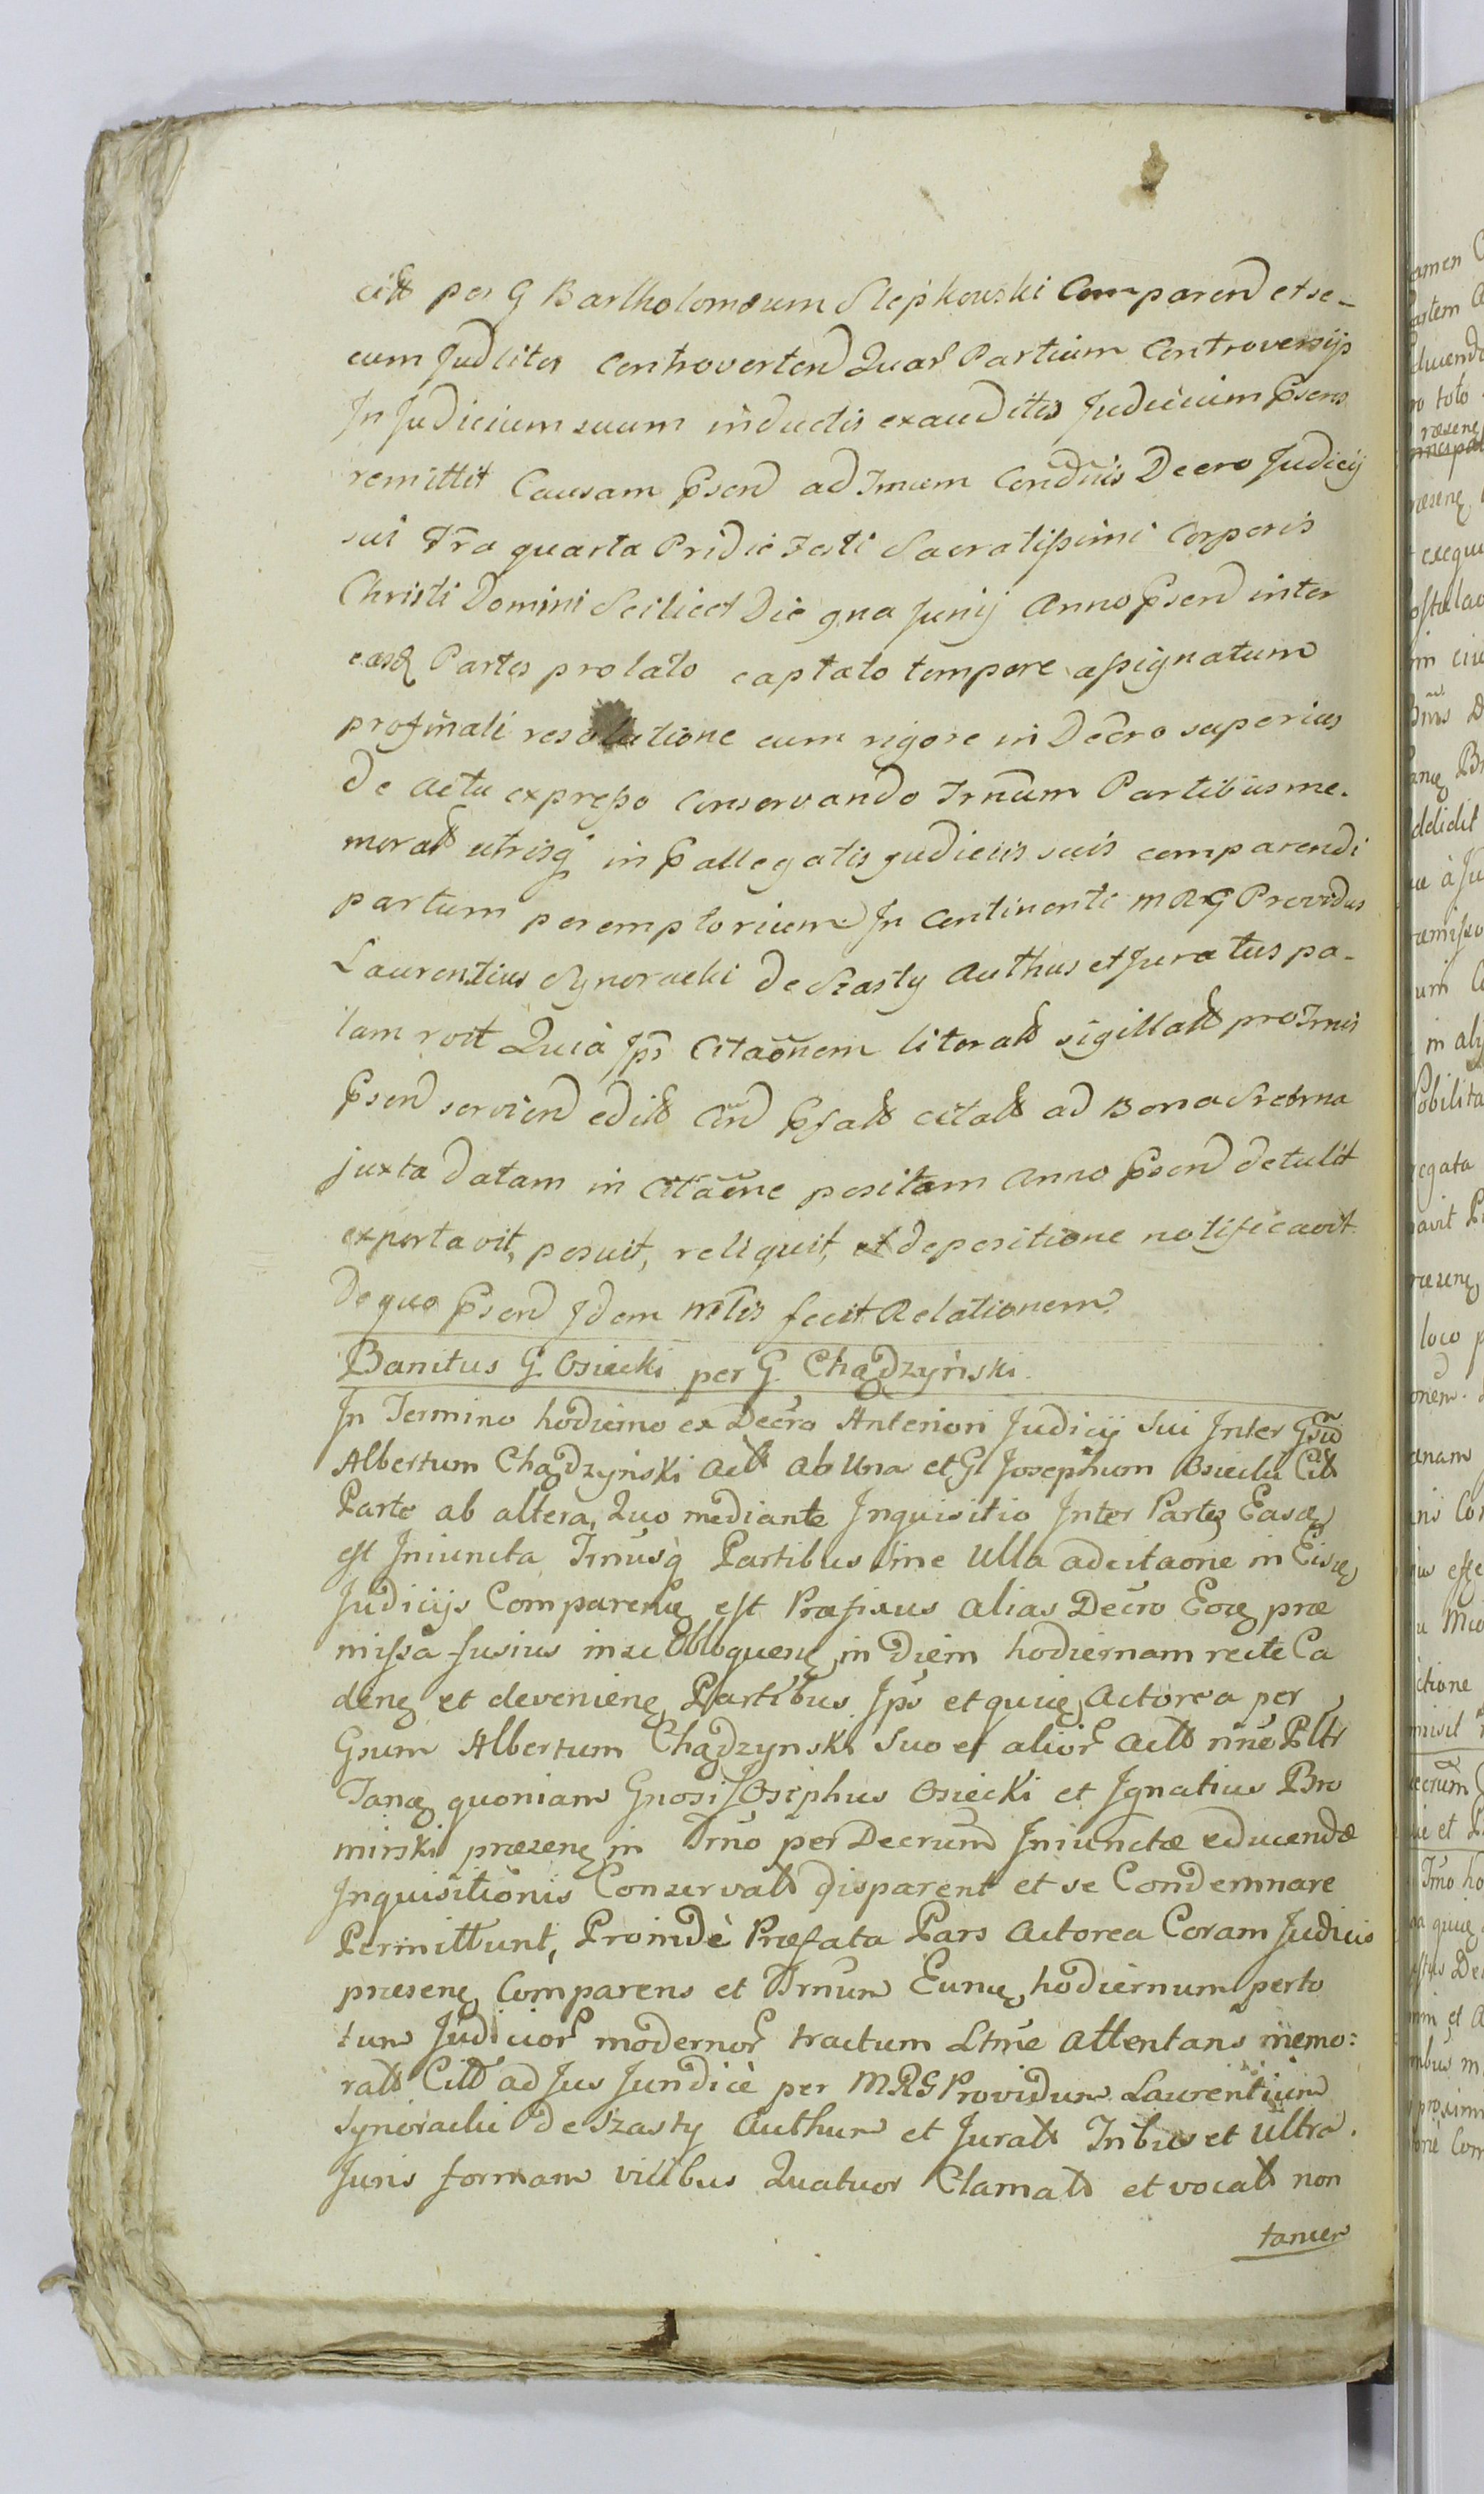 citt per G Bartholomæum Slepkowski Comparend et se-
cum Judliter controvertend Quar Partium Controversijs
In Judicium suum inductis exauditis Judicium Psens
remittit Causam Psend ad Trnum Condnis Decro Judicij
sui Fra quarta Pridie Festi Sacratissimi Corporis
Christi Domini Scilicet Die qna Junij Anno Psend inter
easq Partes prolato captato tempore assignatum
pro finali resolutione cum rigore in Decro superius
de actu expresso conservando Trnum Partibus me-
moratt utrisq in Pallegatis judiciis suis comparendi
partum peremptorium In continenti MRG Providus
Laurentius Synoracki de Szasty Authus et Juratus pa-
lam rovit Quia Ips Citaonem literatt sigillatt pro Trnis
Psend serviend editt Cond Psatt citatt ad Bona Srebrna
juxta datam in Citaone positam Anno Psend detulit
exportavit, posuit, reliquit, et depositione notificavit
De quo Psend Idem mtlis fecit Relationem.
Banitus G. Osiecki per G. Chądzyński.
In Termino hodierno ex Decro Anteriori Judicij Sui Inter Gsud
Albertum Chądzyński Actt ab Una et G Josephum Osiecki Citt
Parte ab altera, Quo mediante Inquisitio Inter Partes Easq
est Iniuncta Trnusq Partibus sine Ulla adcitaone in Eisq
Judicijs Comparenq est Præfixus alias Decro Eoq præ
missa fusius in se Obloquenq in Diem hodiernam recte Ca
denq et devenienq Partibus Ips et quiq Actorea per
Gsum Albertum Chądzynski Suo et alior Actt nne Pltr
Tanq quoniam Gnosi Josephus Osiecki et Ignatius Bro
mirski præsenq in Trno per Decrum Iniunctæ educendæ
Inquisitionis Conservatt disparent et se Condemnare
Permittunt, Proindè Præfata Pars Actorea Coram Judicio
præsenq Comparens et Trnum Eunq hodiernum per to
tum Judicior modernor tractum Ltme Attentans memo:
ratt Citt ad Jus Juridicè per MRG Providum Laurentium
Synoracki de Szasty Authum et Juratt Tribus et Ultra
Juris formam vicibus Quatuor Clamatt et vocatt non
tamen